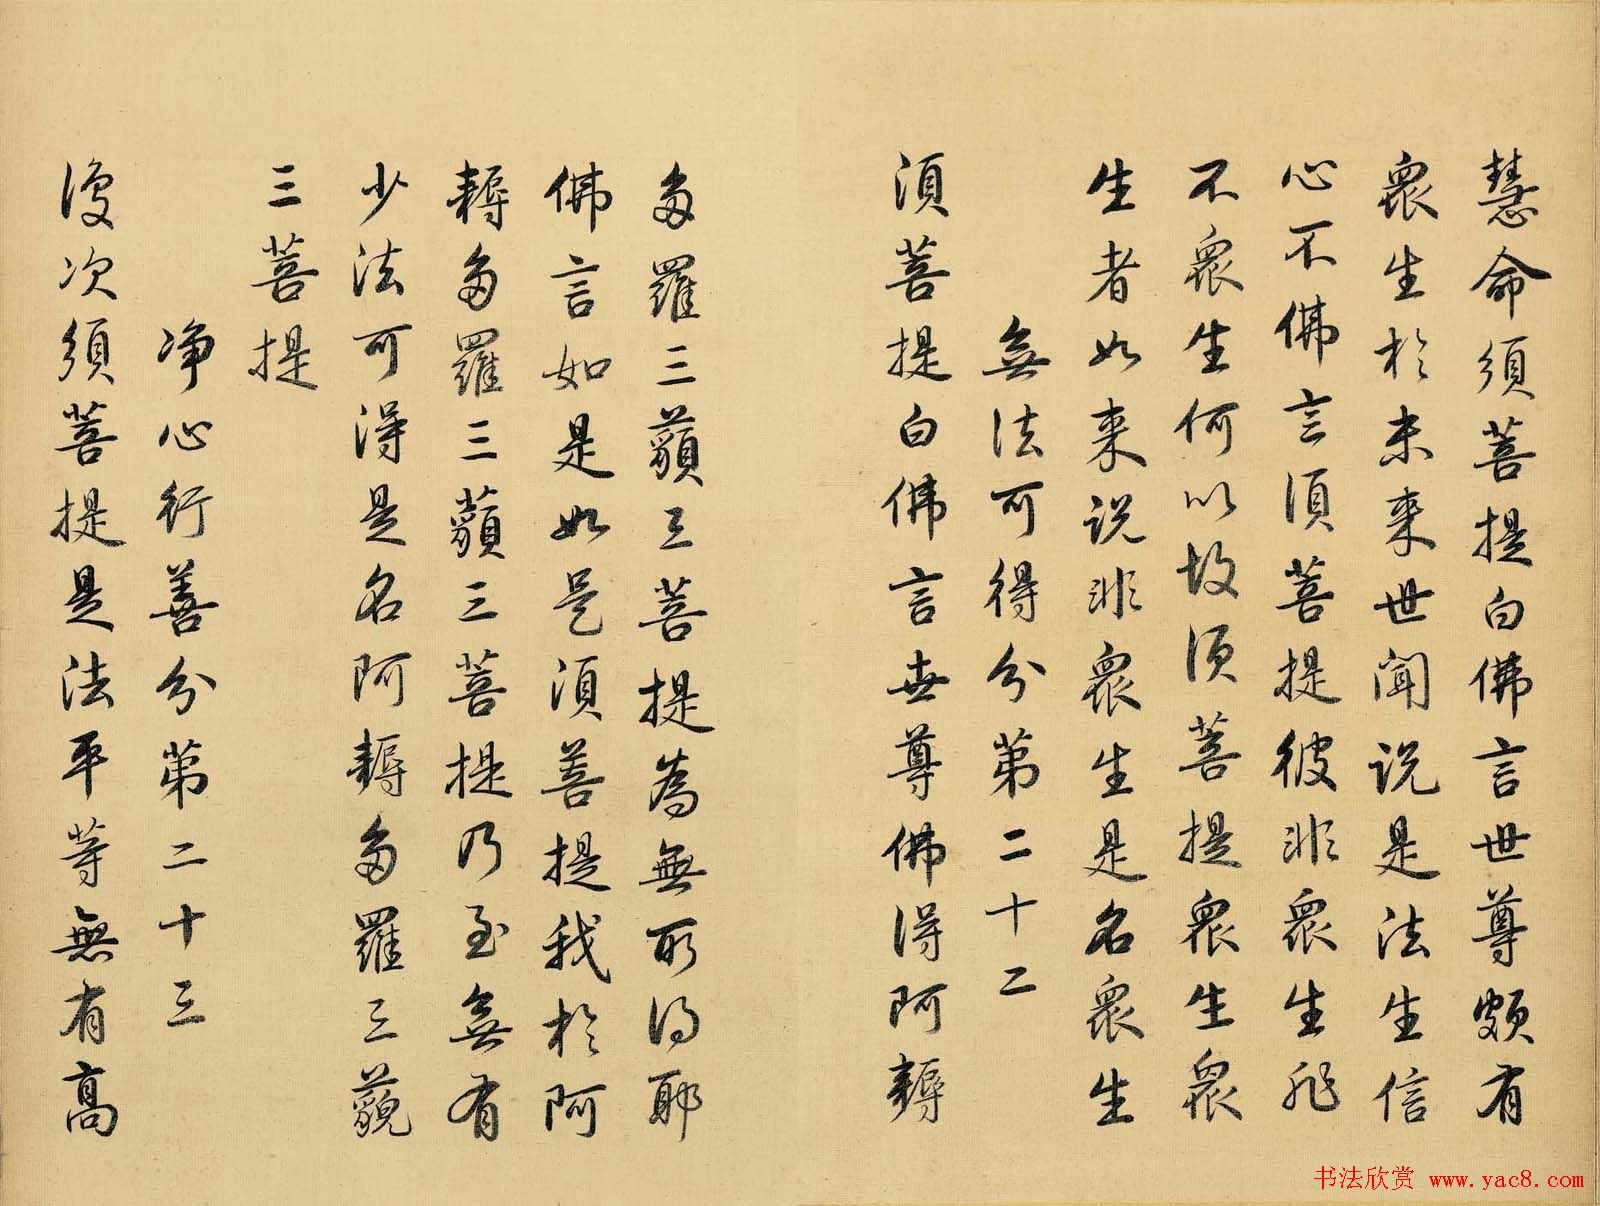 慧命須菩提白佛言世尊頗有
衆生於未来世聞説是法生信
心不佛言須菩提彼非衆生非
不衆生何以故須菩提衆生衆
生者如来説非衆生是名衆生
無法可得分第二十二
須菩提白佛言世尊佛得阿耨
多羅三藐三菩提為無所得耶
佛言如是如是須菩提我於阿
耨多羅三藐三菩提乃至無有
少法可得是名阿耨多羅三藐
三菩提
净心行善分第二十三
復次須菩提是法平等無有高
书法欣赏 www.yac8.com